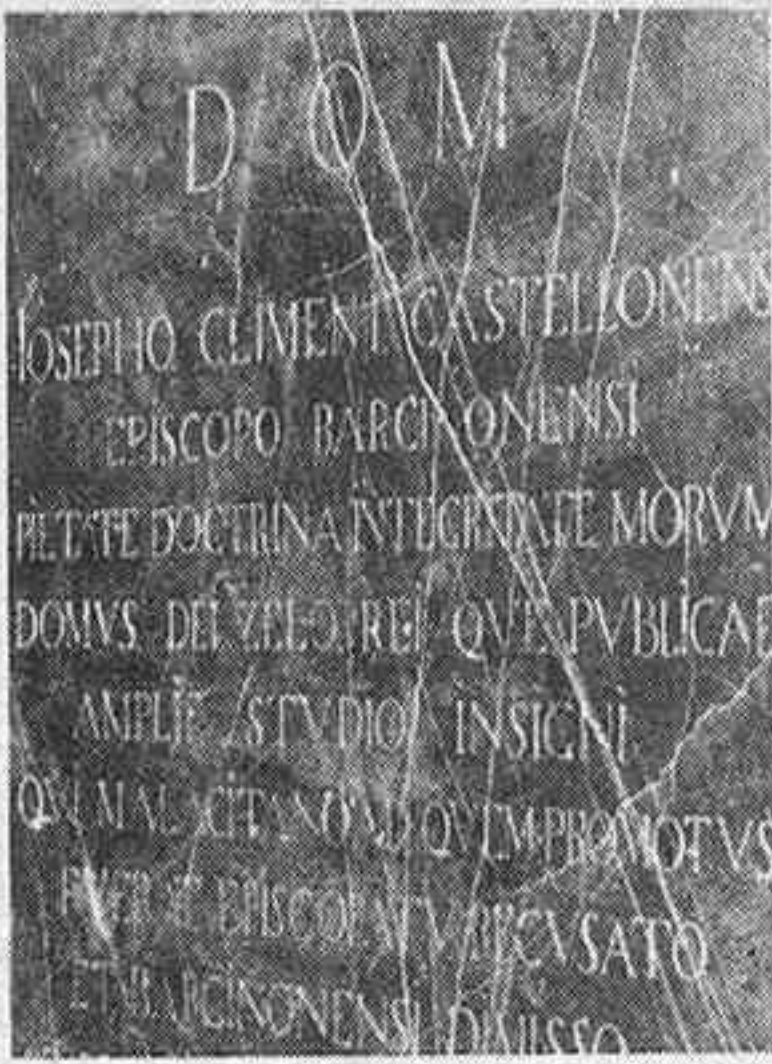 D O M
IOSEPHO CLIMENT CASTELLONENS
EPISCOPO BARCINONENSI
PIETATE DOCTRINA INTEGRITATE MORVM
DOMVS DEI ZELO REI QVE PVBLICAE
STVDIO INSIGNI
QVI MALACITANO AD QVEM PROMOTVS
EPISCOPATV RECVSATO
ET BARCINONENSI DIMISSO